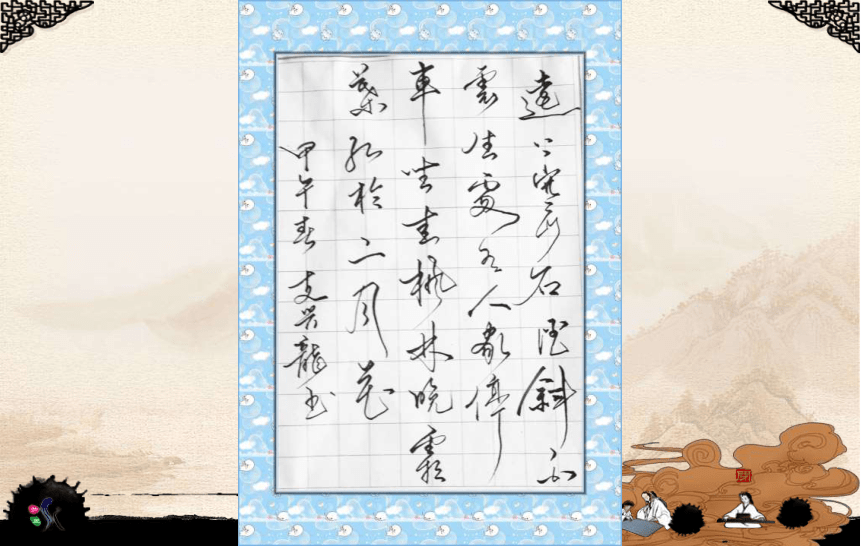 遠上寒山石徑斜白
雲生處有人家停
車坐愛楓林晚霜
葉紅於二月花
甲午春支兴龍书